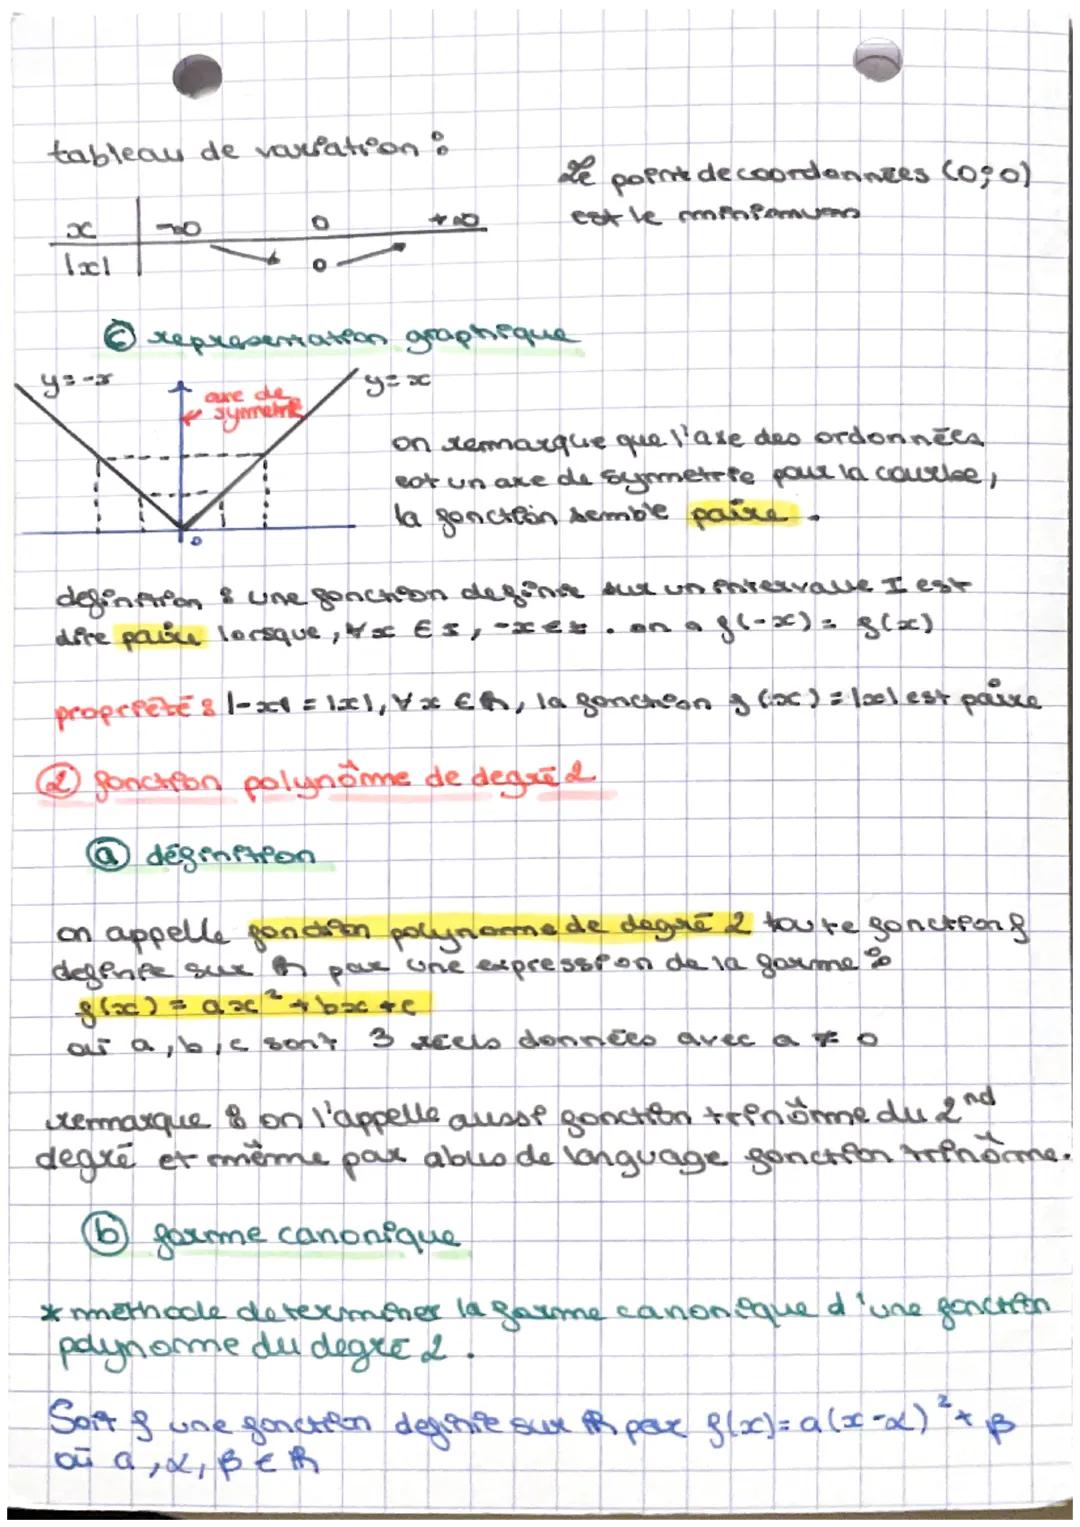 tableau de variation :
Le point de coordonnées (0;0)
est le minimum
x -∞ 0 +∞
|x| 0
c representation graphique
y=-x
axe de
symetrie
y=x
on remarque que l'axe des ordonnées
est un axe de symmetrie pour la courbe,
la fonction semble paire.
0
definition : une fonction definie sur un intervalle I est
dite paire lorsque, ∀x ∈ I, -x ∈ I. on a f(-x) = f(x)
propriété : |-x| = |x|, ∀x ∈ ℝ, la fonction f(x) = |x| est paire
2 fonction polynôme de degré 2
a définition
on appelle fonction polynome de degré 2 toute fonction f
definie sur ℝ par une expression de la forme :
f(x) = ax² + bx + c
où a, b, c sont 3 réels données avec a ≠ 0
remarque : on l'appelle aussi fonction trinôme du 2nd
degré et même par abus de language fonction trinôme.
b forme canonique
* méthode determiner la forme canonique d'une fonction
polynome du degré 2.
Soit f une fonction definie sur ℝ par f(x) = a(x-α)² + β
où a, α, β ∈ ℝ